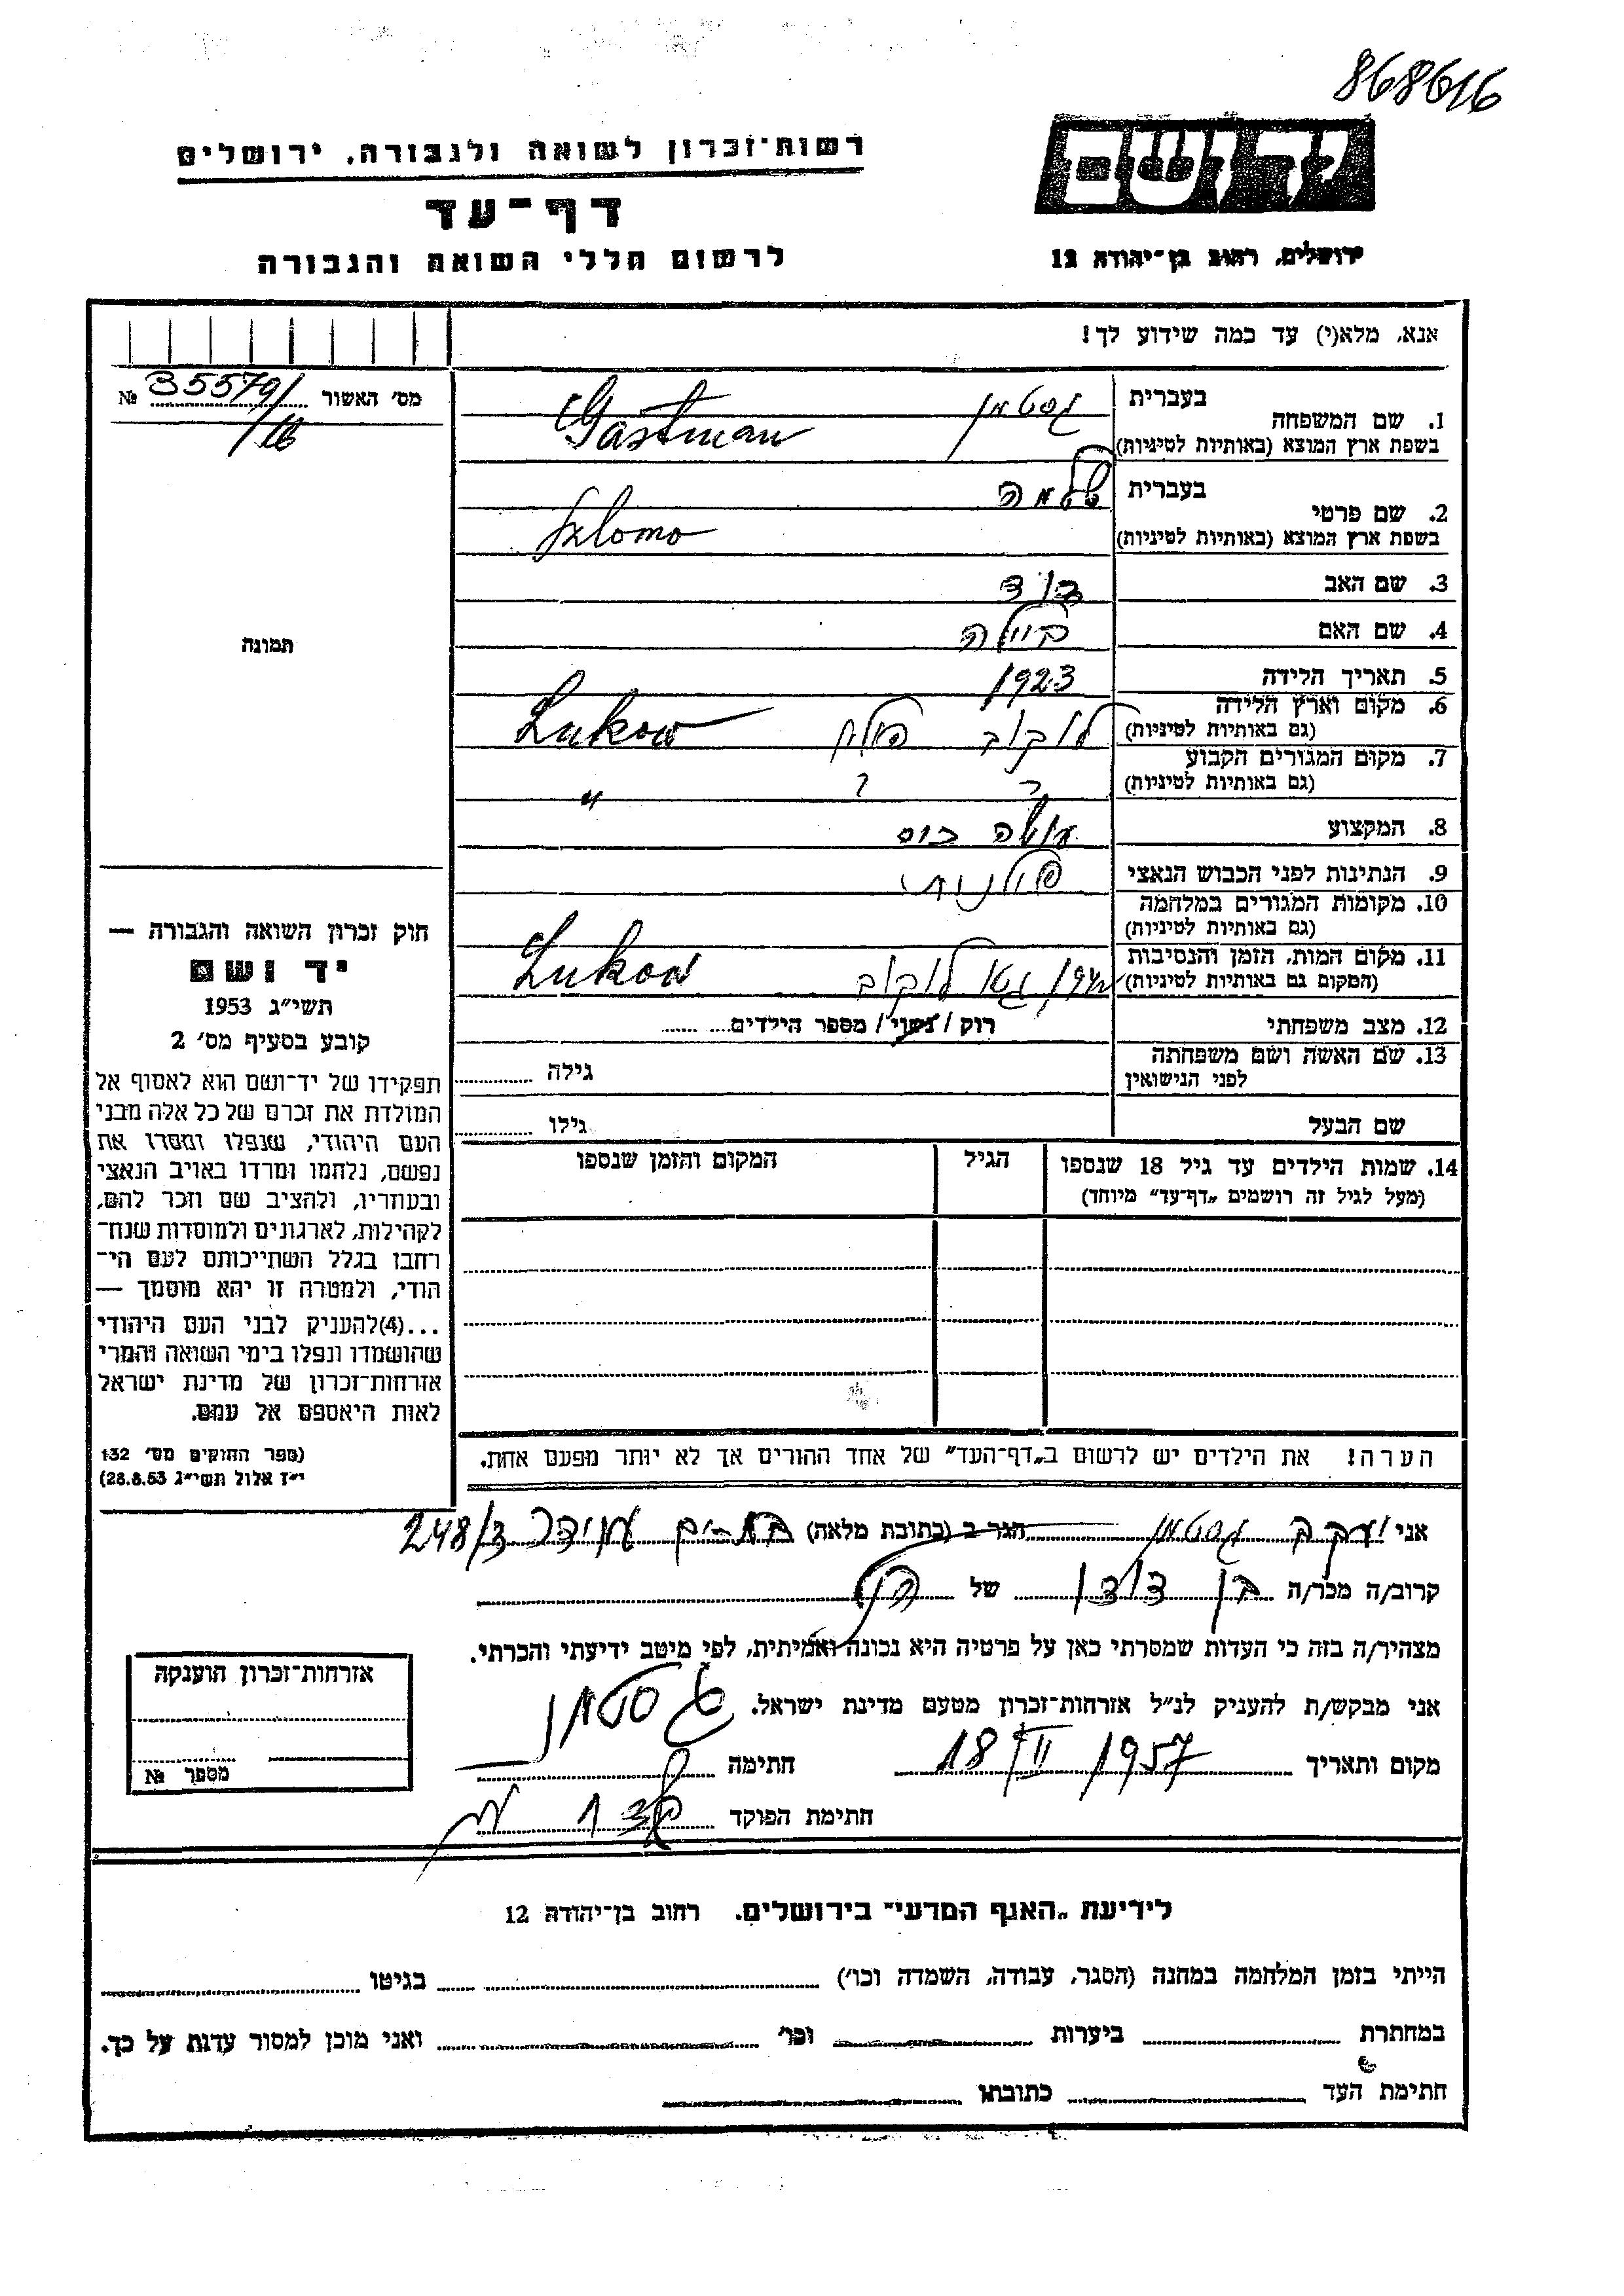 868616
רשות־זכרון לשואה ולגבורה, ירושלים
יד ושם
דף־עד
לרשום חללי השואה והגבורה
ירושלים, רחוב בן־יהודה 12
אנא, מלא(י) עד כמה שידוע לך!
מס׳ האשור № 35579/16
בעברית גסטמן
1. שם המשפחה
בשפת ארץ המוצא (באותיות לטיניות) Gastman
בעברית שלמה
2. שם פרטי
בשפת ארץ המוצא (באותיות לטיניות) Szlomo
3. שם האב דוד
4. שם האם ביילה
תמונה
5. תאריך הלידה 1923
6. מקום וארץ הלידה
(גם באותיות לטיניות) לוקוב פולין Łukow
7. מקום המגורים הקבוע
(גם באותיות לטיניות) "
8. המקצוע
9. הנתינות לפני הכבוש הנאצי פולנית
10. מקומות המגורים במלחמה
(גם באותיות לטיניות)
11. מקום המות, הזמן והנסיבות
(המקום גם באותיות לטיניות) לוקוב Łukow
12. מצב משפחתי רוק / נשוי / מספר הילדים
13. שם האשה ושם משפחתה
לפני הנישואין גילה
שם הבעל גילו
14. שמות הילדים עד גיל 18 שנספו הגיל המקום והזמן שנספו
(מעל לגיל זה רושמים „דף־עד” מיוחד)
הערה! את הילדים יש לרשום ב„דף־העד” של אחד ההורים אך לא יותר מפעם אחת.
חוק זכרון השואה והגבורה —
יד ושם
תשי״ג 1953
קובע בסעיף מס׳ 2
תפקידו של יד־ושם הוא לאסוף אל
המולדת את זכרם של כל אלה מבני
העם היהודי, שנפלו ומסרו את
נפשם, נלחמו ומרדו באויב הנאצי
ובעוזריו, ולהציב שם וזכר להם,
לקהילות, לארגונים ולמוסדות שנח־
רבו בגלל השתייכותם לעם הי־
הודי, ולמטרה זו יהא מוסמך —
...(4)להעניק לבני העם היהודי
שהושמדו ונפלו בימי השואה והמרי
אזרחות־זכרון של מדינת ישראל
לאות היאספם אל עמם.
(ספר החוקים מס׳ 132
י״ז אלול תשי״ג 28.8.53)
אני יעקב גסטמן הגר ב (כתובת מלאה) בת-ים עמידר 248/3
קרוב/ה מכר/ה בן דודו של הנ"ל
מצהיר/ה בזה כי העדות שמסרתי כאן על פרטיה היא נכונה ואמיתית, לפי מיטב ידיעתי והכרתי.
אני מבקש/ת להעניק לנ״ל אזרחות־זכרון מטעם מדינת ישראל.
מקום ותאריך 18/II 1957 חתימה גסטמן
חתימת הפוקד
אזרחות־זכרון הוענקה
מספר №
לידיעת „האגף המדעי״ בירושלים. רחוב בן־יהודה 12
הייתי בזמן המלחמה במחנה (הסגר, עבודה, השמדה וכו׳) בגיטו
במחתרת ביערות וכו׳ ואני מוכן למסור עדות על כך.
חתימת העד כתובתו